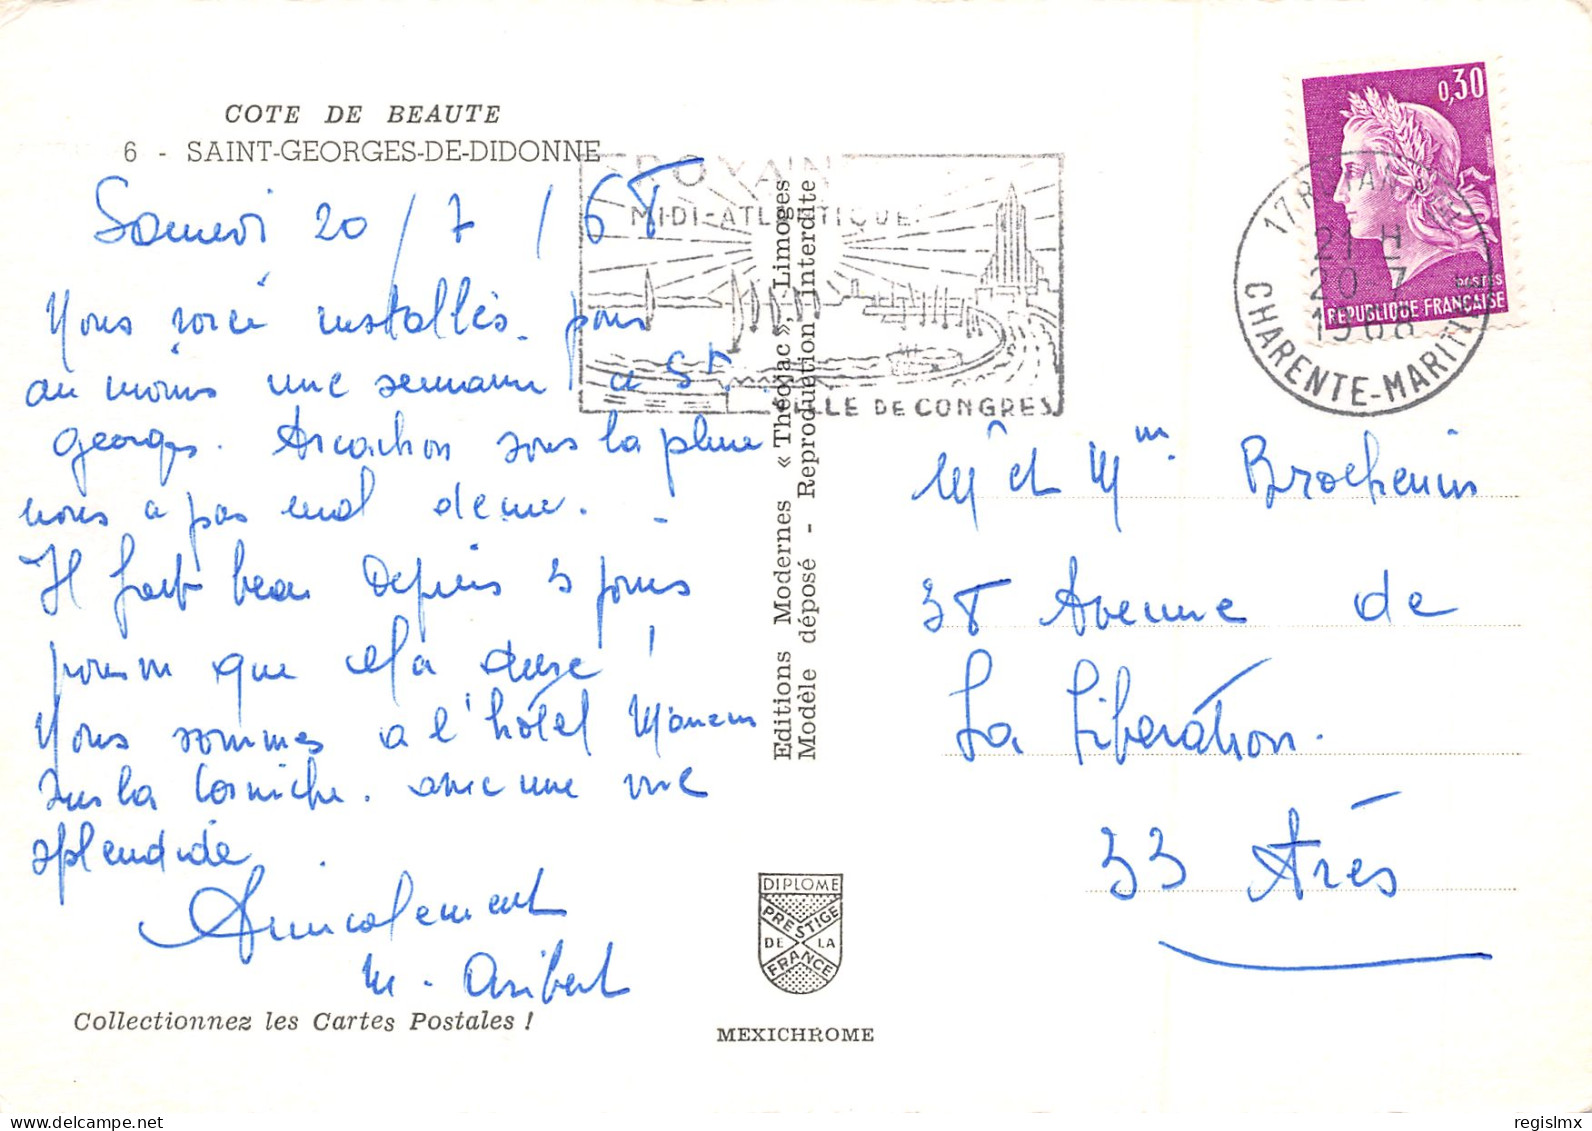 COTE DE BEAUTE
6 - SAINT-GEORGES-DE-DIDONNE
Samedi 20/7/68
Nous voici installés pour
au moins une semaine a St
georges. Arcachon sous la pluie
nous a pas mal déçu.
Il fait beau depuis 3 jours
pourvu que cela dure !
Nous sommes a l'hôtel
sur la Corniche. avec une vue
splendide.
Amicalement
M.
Collectionnez les Cartes Postales !
ROYAN
MIDI-ATLANTIQUE
VILLE DE CONGRES
Editions Modernes « Théojac », Limoges
Modèle déposé - Reproduction interdite
DIPLOME
PRESTIGE
DE LA
FRANCE
MEXICHROME
0,30
POSTES
REPUBLIQUE FRANÇAISE
17 ROYAN
21 H
20 7
1968
CHARENTE-MARITIME
Mr et Mme Brochenin
38 Avenue de
La Libération.
33 Arès
regislmx